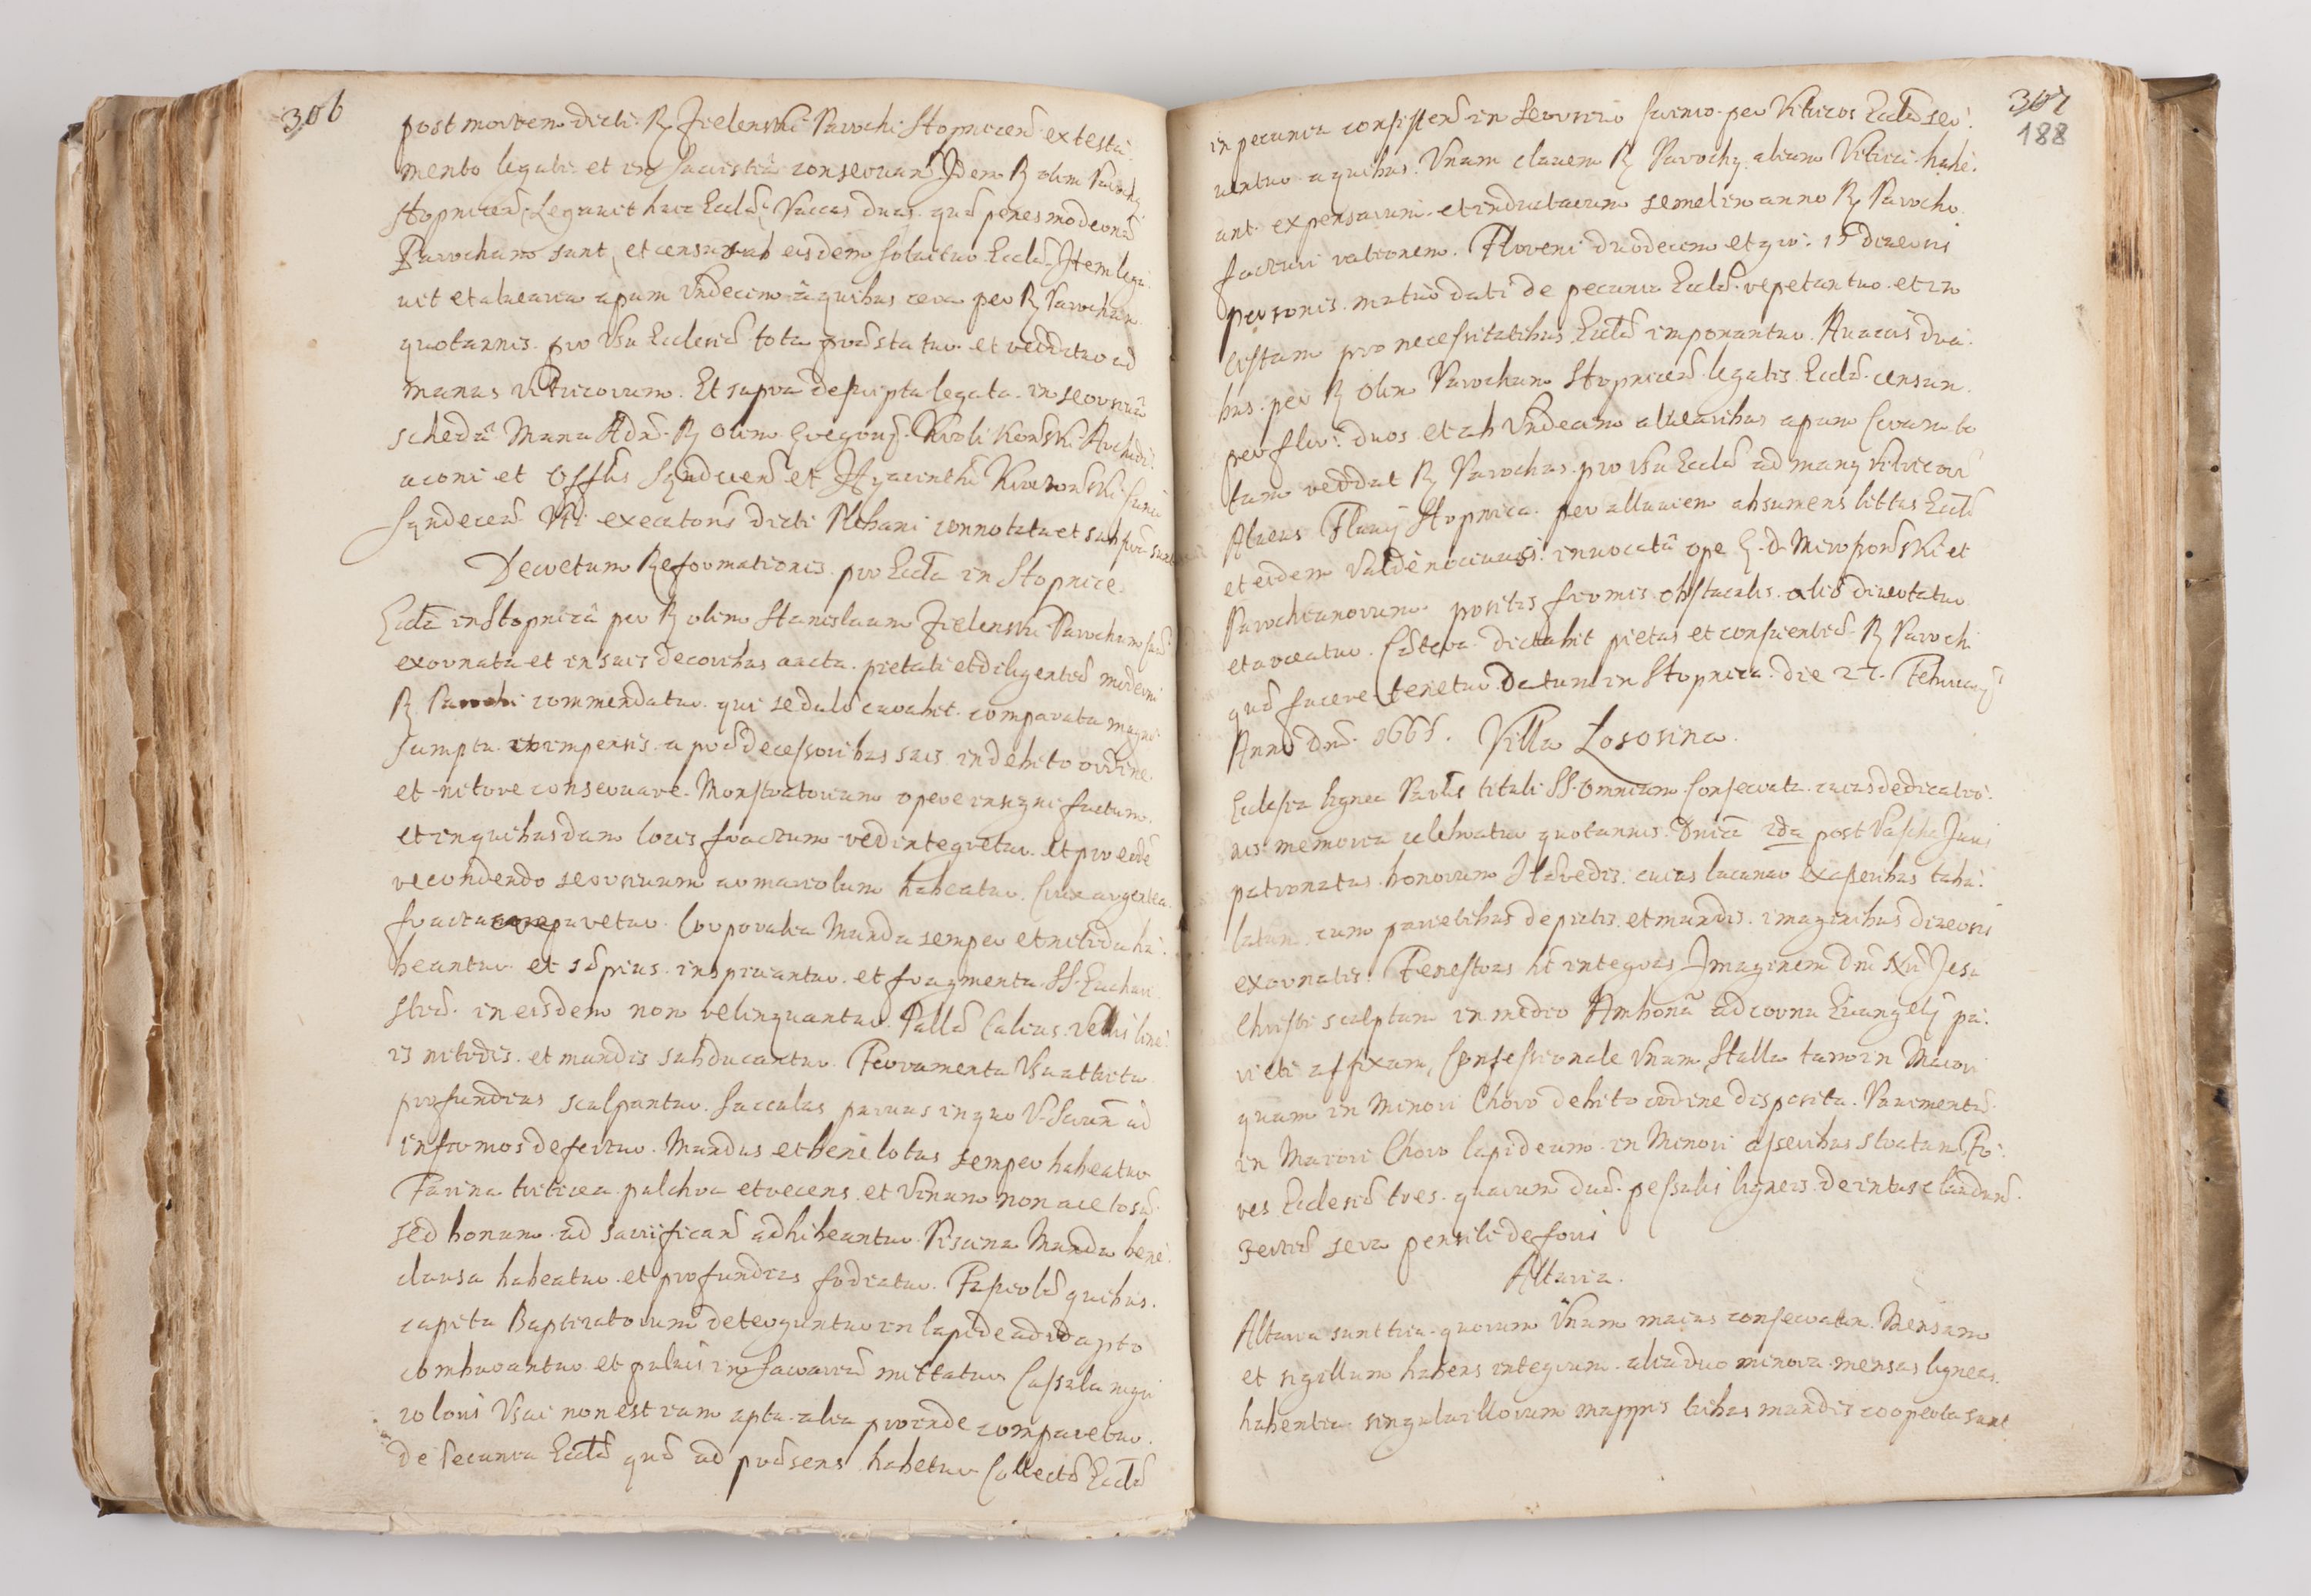 306
post mortem dicti R Zielenski Parochi Stopnicen ex testa
mento legati et in Sacristia conservan. Idem R olim Paroch
Stopnicen. Legavit huic Eccla Vaccas duas quæ penes modernū
Parochum sunt, et census ab eisdem solvitur Eccla. Item lega
vit et alvearia apum Vndecim a quibus cera per R Parochum
quotannis pro Vsu Ecclesiæ tota præstatur et redditur ad
manus Vitricorum. Et supra descripta legata in seorsiva
scheda Manu Adm R Olim Gregorij Archidi
aconi et Offlis Sandecen et Hyacinthi
Sandecen Vti executoris dicti Plebani connotata et subscr sunt
Decretum Reformationis pro Eccla in Stopnice
Eccla in Stopnica per R olim Stanislaum Zielenski Parochum suū
exornata et in suis decoribus aucta pietati et diligentiæ moderni
R Parochi commendatur qui sedulo curabit comparata magno
sumptu et impensis a prædecessoribus suis in debito ordine
et nitore conservare. Monstratorium opere insigni factum
et in quibusdam locis fractum redintegretur et pro eodē
recondendo seorsivum armariolum habeatur. Crux argentea
fracta reparetur. Corporalia Munda semper et nitida ha
beantur et sæpius inspiciantur et fragmenta SS. Euchari
stiæ in eisdem non relinquantur. Pallæ Calicis telis line
is nitidis et mundis subducantur. Ferramenta Vsu attrita
profundius sculpantur. Sacculus parvus in quo V. Sacrm̄ ad
infirmos defertur. Mundus et bene lotus semper habeatur
Farina triticea pulchra et recens et Vinum non acetosū
sed bonum ad sacrifican adhibeantur. Piscina Munda bene
clausa habeatur et profundius fodiatur. Fasciolæ quibus
capita Baptizatorum deteguntur in lapide ad id apto
comburantur et pulvis in Sacrariū mittatur Casula nigri
coloris Vsui non est iam apta alia proinde comparetur.
De pecunia Ecclæ quæ ad præsens habetur Collecta Ecclæ
307
188
in pecunia consisten in seorsivo scrinio per Vitricos Ecclæ ser
ventur a quibus Vnam clavem R Parochus aliam Vitrici habe
ant expensarum et inductarum semel in anno R Parocho
facturi rationem. Floreni duodecim et gro: 15 diversis
personis mutuo dati de pecunia Ecclæ repetantur et in
Cistam pro necessitatibus Ecclæ imponantur. A vaccis dua
bus per R Olim Parochum Stopnicen legatis Ecclæ censum
per flor: duos et ab Vndecim alvearibus apum Ceram to
tam reddat R Parochus pro Vsu Ecclæ ad manus Vitricorū
Alveus Fluvij Stopnica per alluviem absumens littus Ecclæ
et eidem Valde nocivus invocata ope G. D. et
Parochianorum positis firmis obstaculis alio divertatur
et arceatur. Cætera dictabit pietas et conscientia R Parochi
quæ facere tenetur. Datum in Stopnica die 27 Februarij
Anno Dni 1665. Villa Lososina.
Ecclesia lignea Parlis tituli SS. Omnium Consecrata cuius dedicatio
nis memoria celebratur quotannis Dnica 2da post Pascha Juris
patronatus bonorum Hæredis cuius lacunar ex asseribus tabu
latum cum parietibus depictis et mundis imaginibus diversis
exornatis. Fenestras ht integras Imaginem Dni Nri Jesu
Christi sculptam in medio Ambonā ad cornu Evangelij pa
rieti affixam, Confessionale Vnum, Stalla tam in Maiori
quam in Minori Choro debito ordine disposita. Pavimentū
in Maiori Choro lapideum in Minori asseribus stratum Fo
res Ecclesiæ tres quarum duæ pessulis ligneis deintus claudun
Tertia sera pensili deforis
Altaria.
Altaria sunt tria quorum Vnum maius consecratū. Mensam
et sigillum habens integrum alia duo minora mensas ligneas
habentia singula illorum mappis tribus mundis cooperta sunt